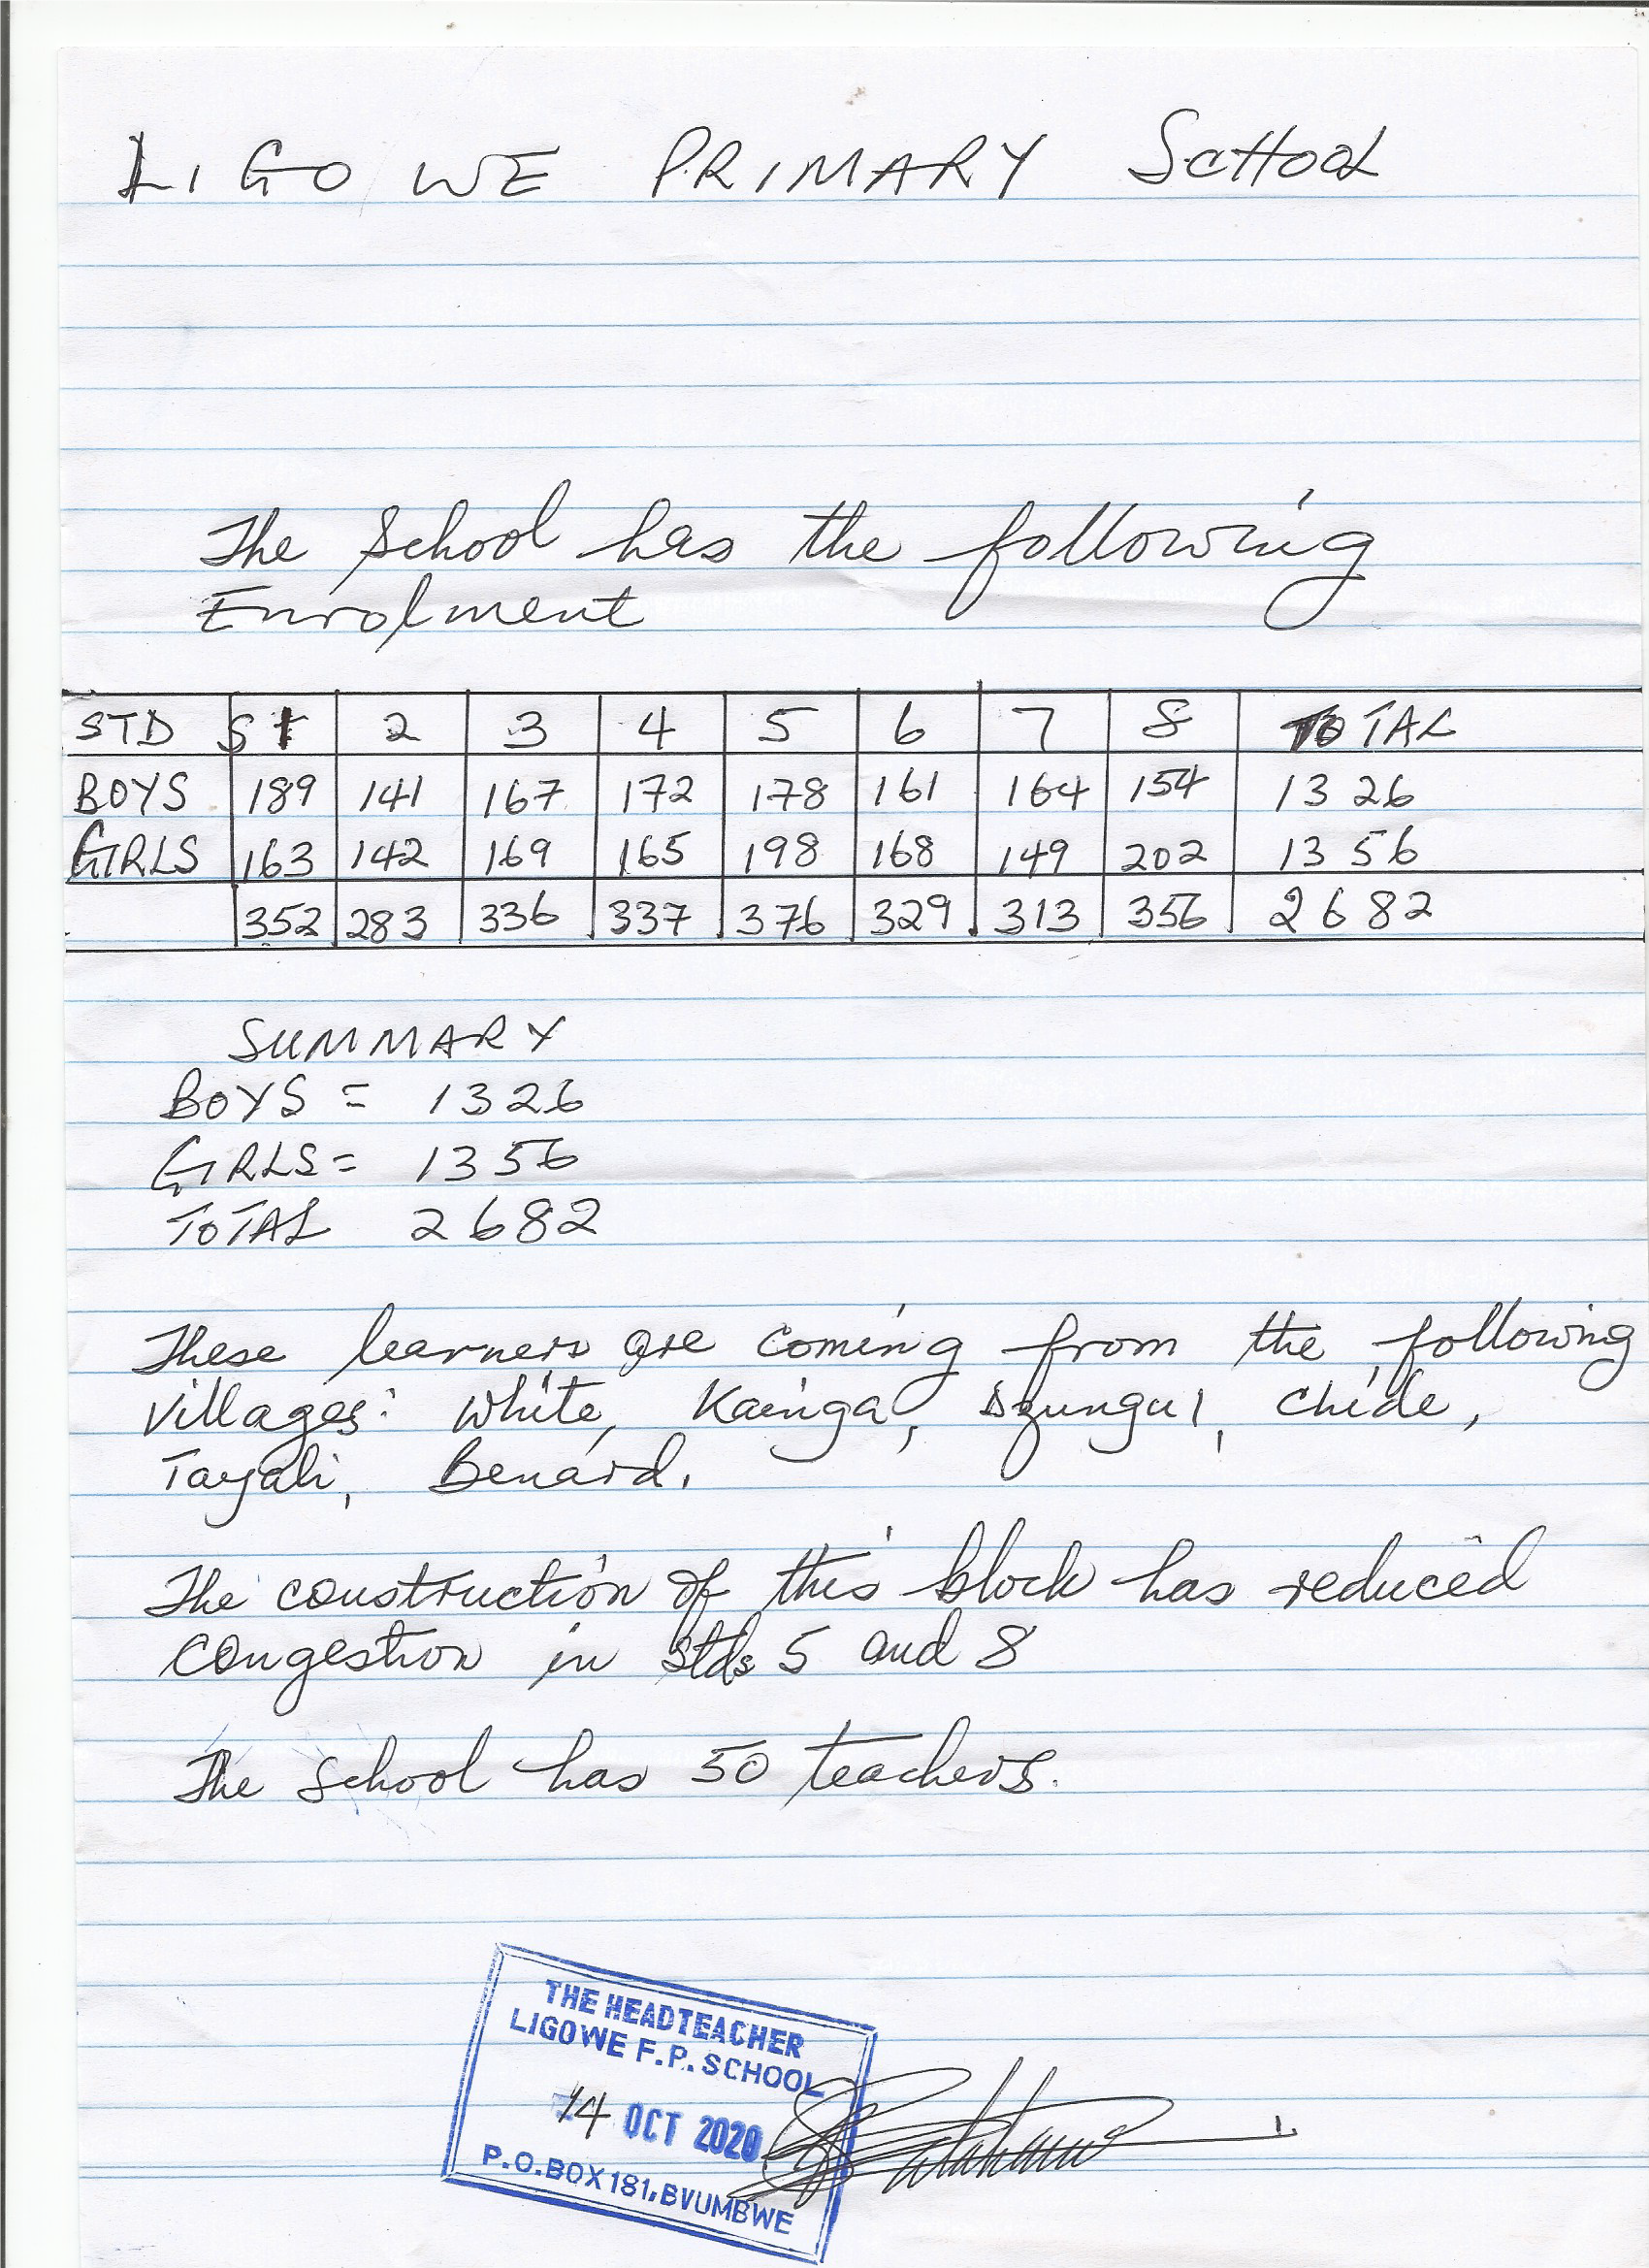 LIGOWE PRIMARY SCHOOL
The School has the following
Enrolment
STD S 1 2 3 4 5 6 7 8 TOTAL
BOYS 189 141 167 172 178 161 164 154 1326
GIRLS 163 142 169 165 198 168 149 202 1356
352 283 336 337 376 329 313 356 2682
SUMMARY
BOYS = 1326
GIRLS = 1356
TOTAL 2682
These learners are coming from the following
villages: White, Kainga, Dzungu, Chide,
Tayali, Benard.
The construction of this block has reduced
congestion in stds 5 and 8
The School has 50 teachers.
THE HEADTEACHER
LIGOWE F.P. SCHOOL
14 OCT 2020
P.O.BOX 181, BVUMBWE